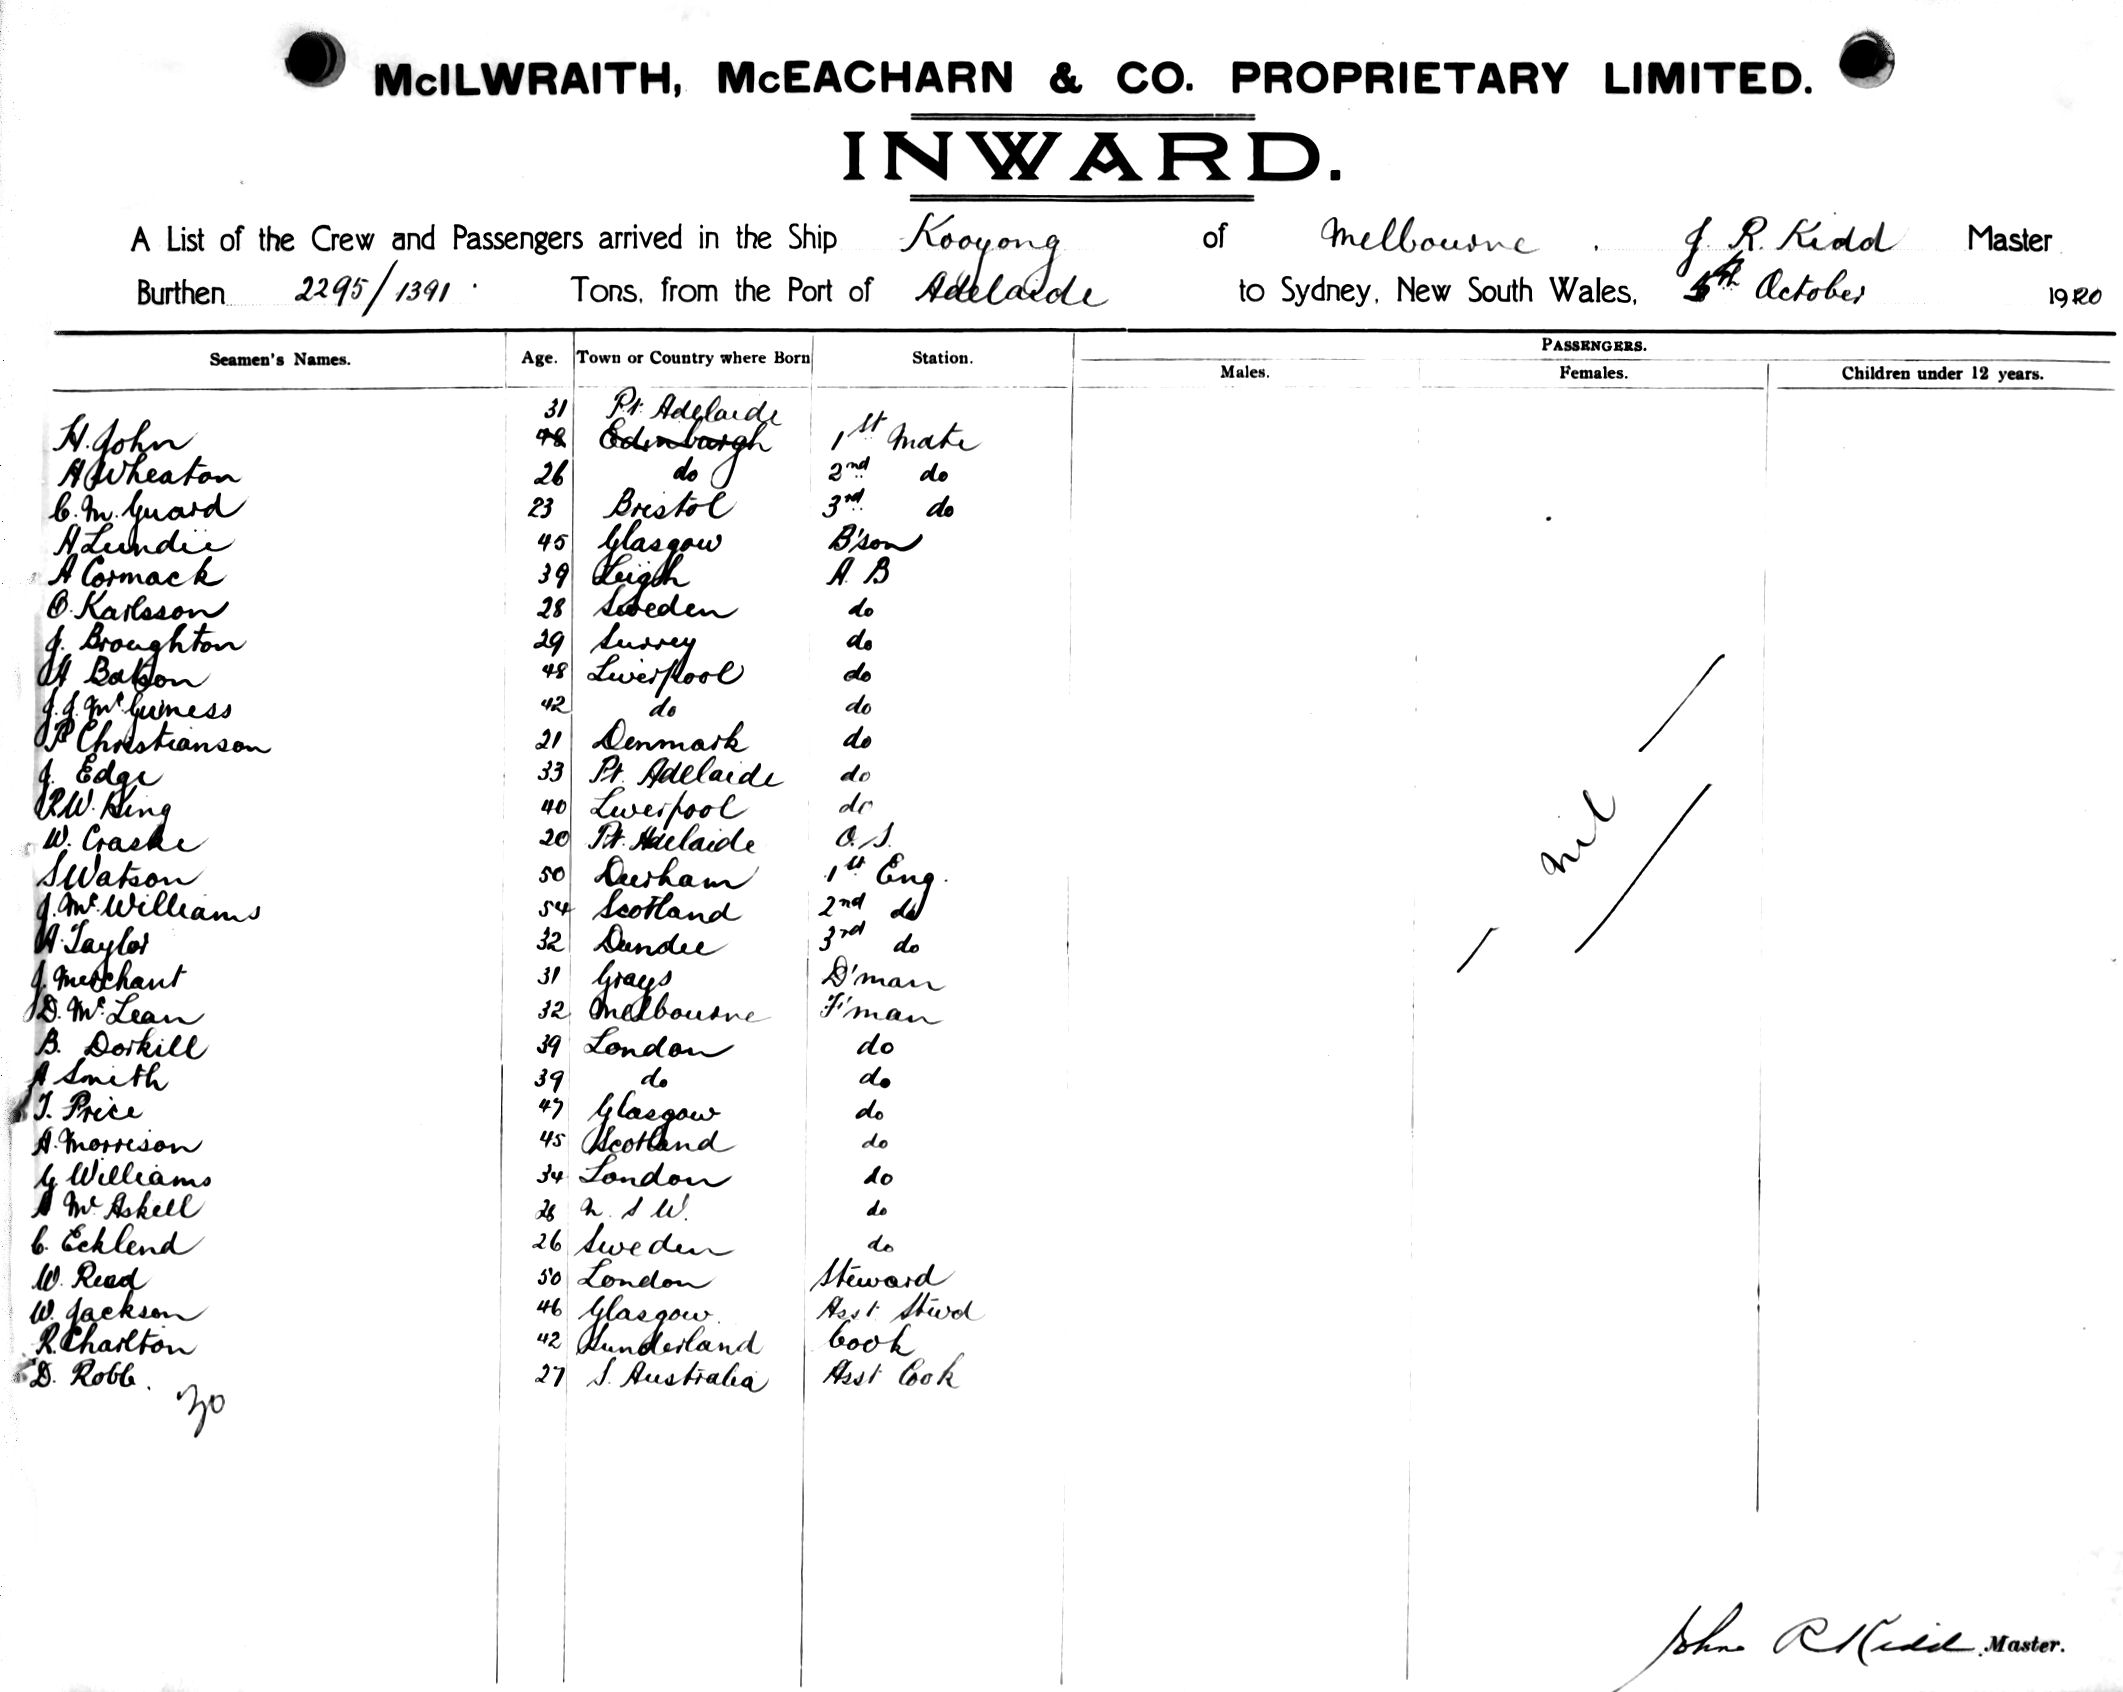 McILWRAITH, McEACHARN & CO. PROPRIETARY LIMITED.
INWARD.
A List of the Crew and Passengers arrived in the Ship Kooyong of Melbourne. J. R. Kidd Master
Burthen 2295/1391 Tons, from the Port of Adelaide to Sydney, New South Wales, 5th October 1920
Seamen's Names. Age. Town or Country where Born Station. PASSENGERS.
Males. Females. Children under 12 years.
31 Pt. Adelaide
H. John 48 Edinburgh 1st Mate
A Wheaton 26 do 2nd do
C. M. Guard 23 Bristol 3rd do
A Lundie 45 Glasgow B'son
A Cormack 39 Leigh A. B
O. Karlsson 28 Sweden do
J. Broughton 29 Surrey do
H Batson 48 Liverpool do
J. J. McGuiness 42 do do
P Christianson 21 Denmark do
J. Edge 33 Pt. Adelaide do
R.W. King 40 Liverpool do
W. Craske 20 Pt. Adelaide O. S.
S Watson 50 Durham 1st Eng.
J. Mc Williams 54 Scotland 2nd do
A. Taylor 32 Dundee 3rd do
J. Merchant 31 Grays D'man
D. Mc Lean 32 Melbourne F'man
B. Dorkill 39 London do
A Smith 39 do do
T. Price 47 Glasgow do
A. Morrison 45 Scotland do
G Williams 34 London do
A Mc Askell 26 N. S W. do
C. Ecklend 26 Sweden do
W. Read 50 London Steward
W. Jackson 46 Glasgow. Asst Stwd
R. Charlton 42 Sunderland Cook
D. Robb. 27 S. Australia Asst Cook
30
nil
John R Kidd Master.